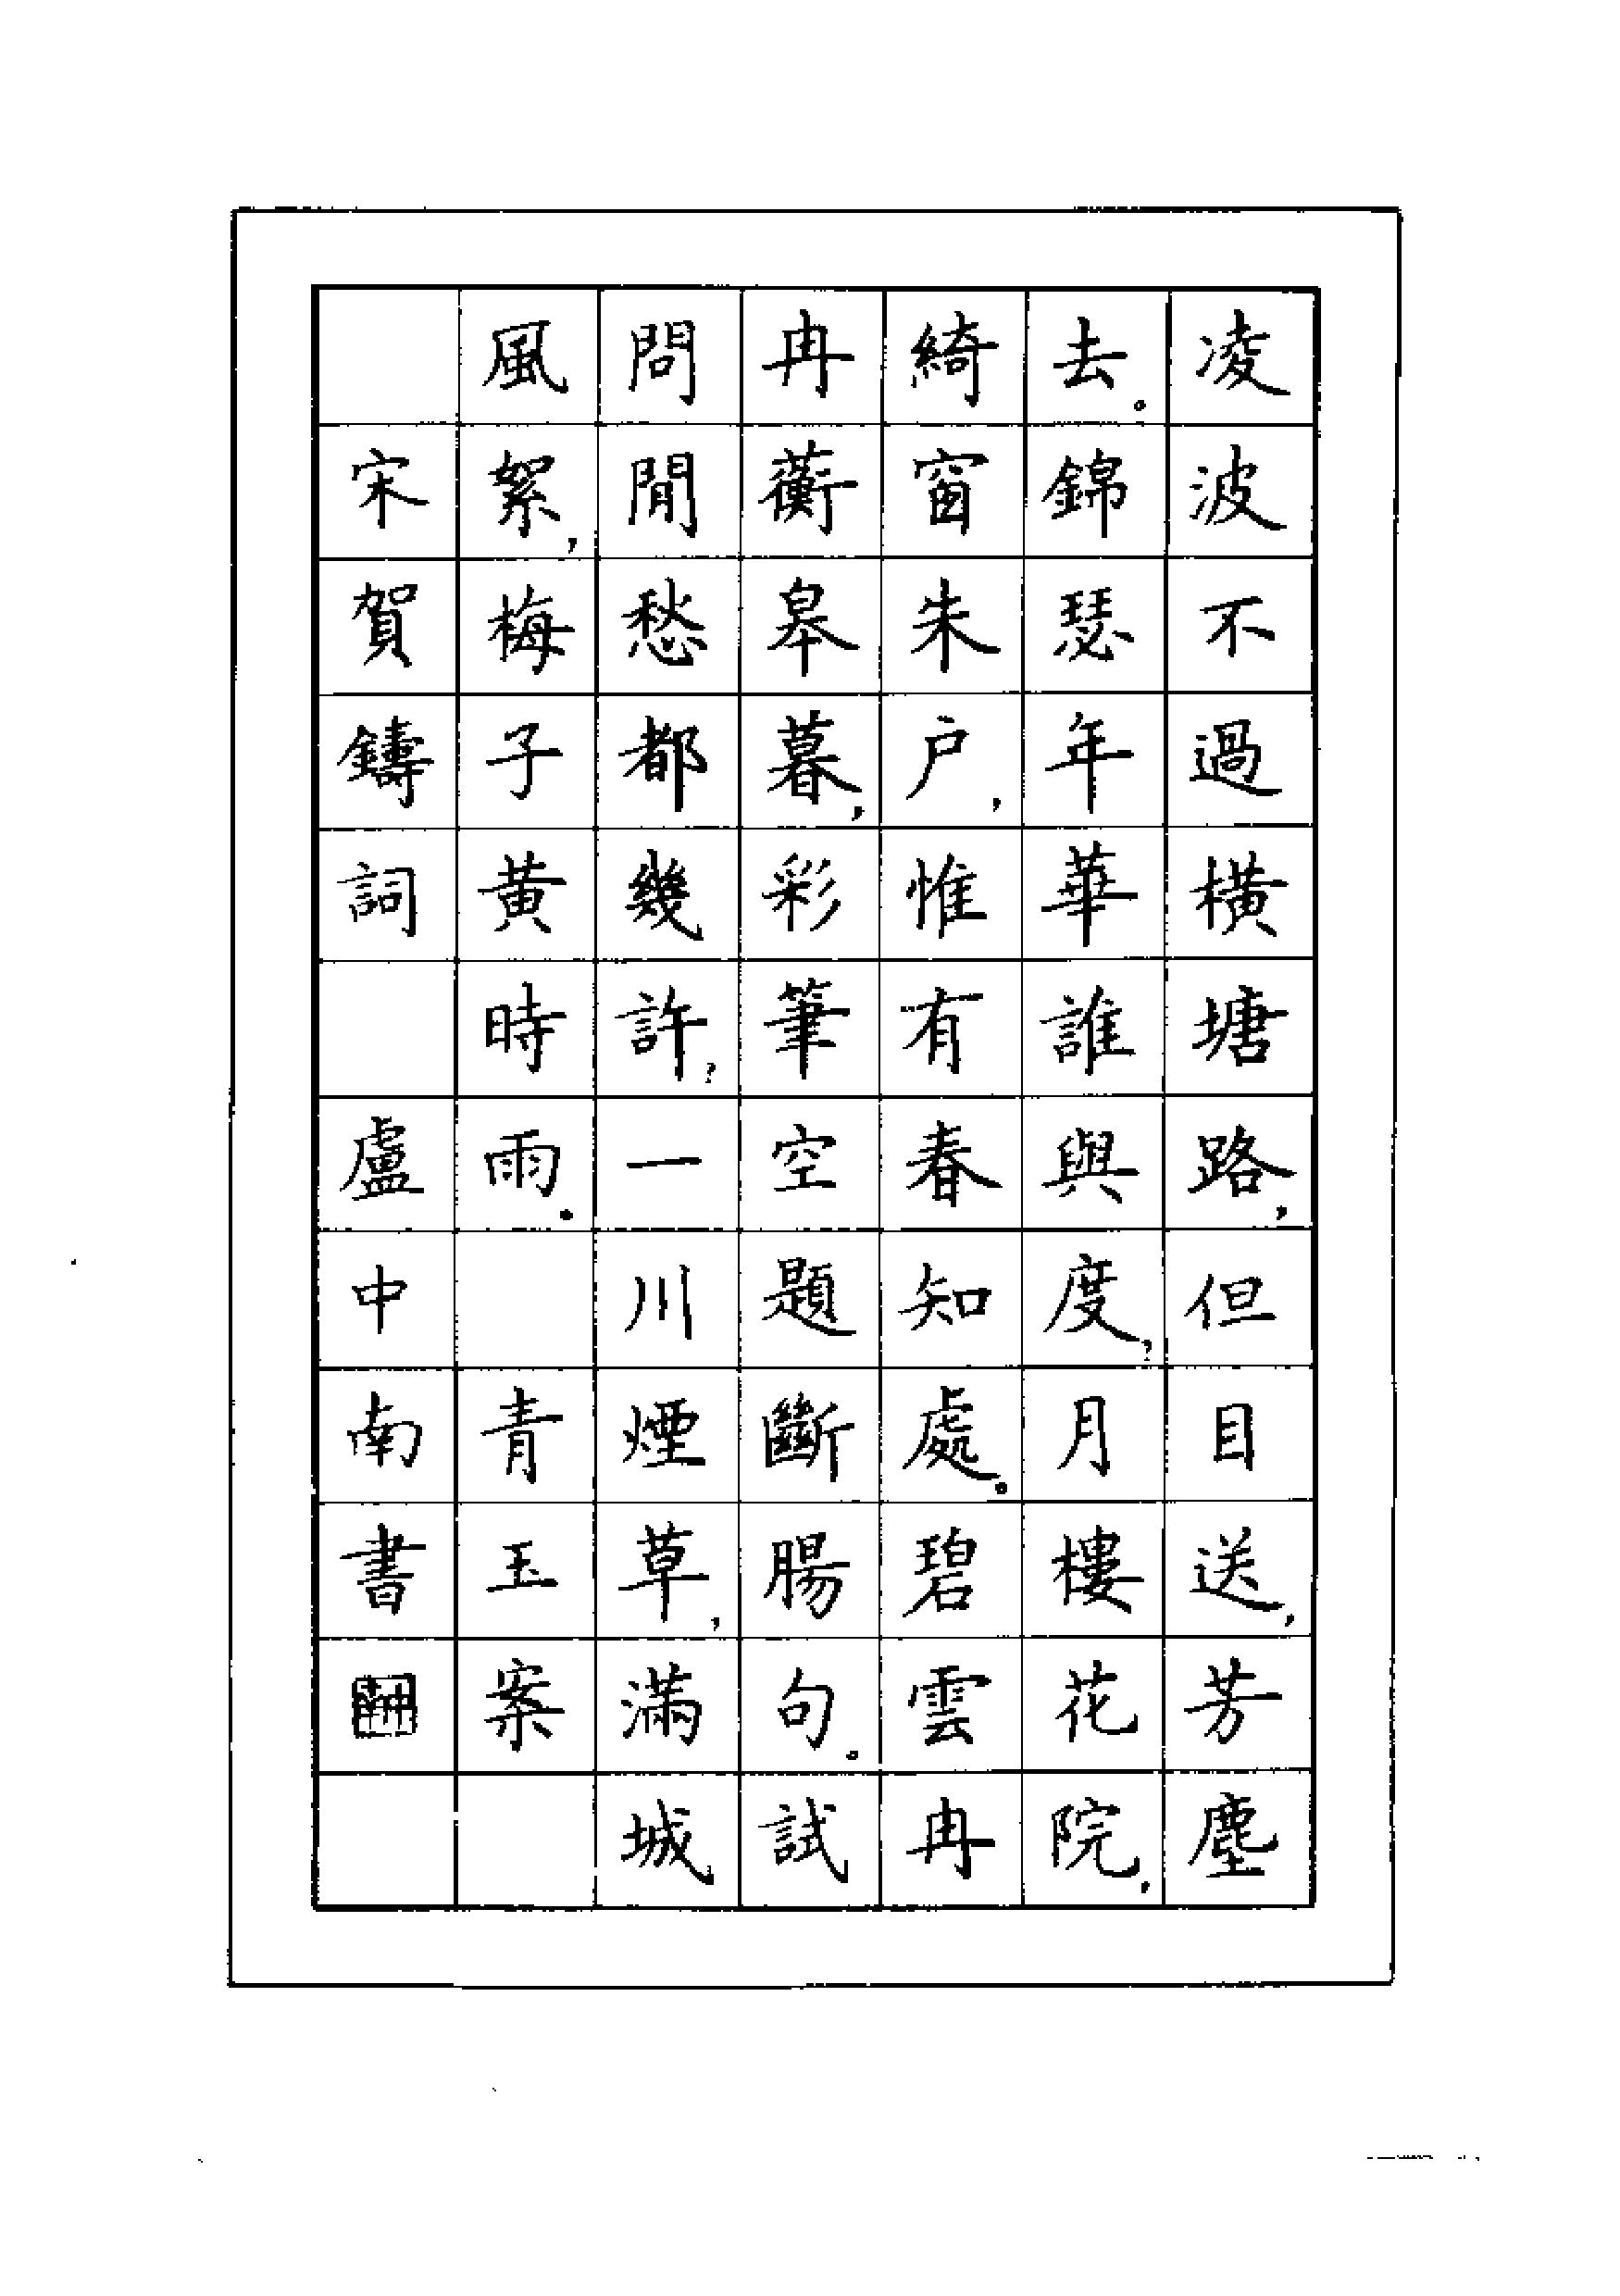 凌波不過橫塘路，但目送，芳塵
去。錦瑟年華誰與度？月樓花院，
綺窗朱户，惟有春知處。碧雲冉
冉蘅皋暮，彩筆空題斷腸句。試
問閒愁都幾許？一川煙草，滿城
風絮，梅子黃時雨。 青玉案
宋賀鑄詞 盧中南書